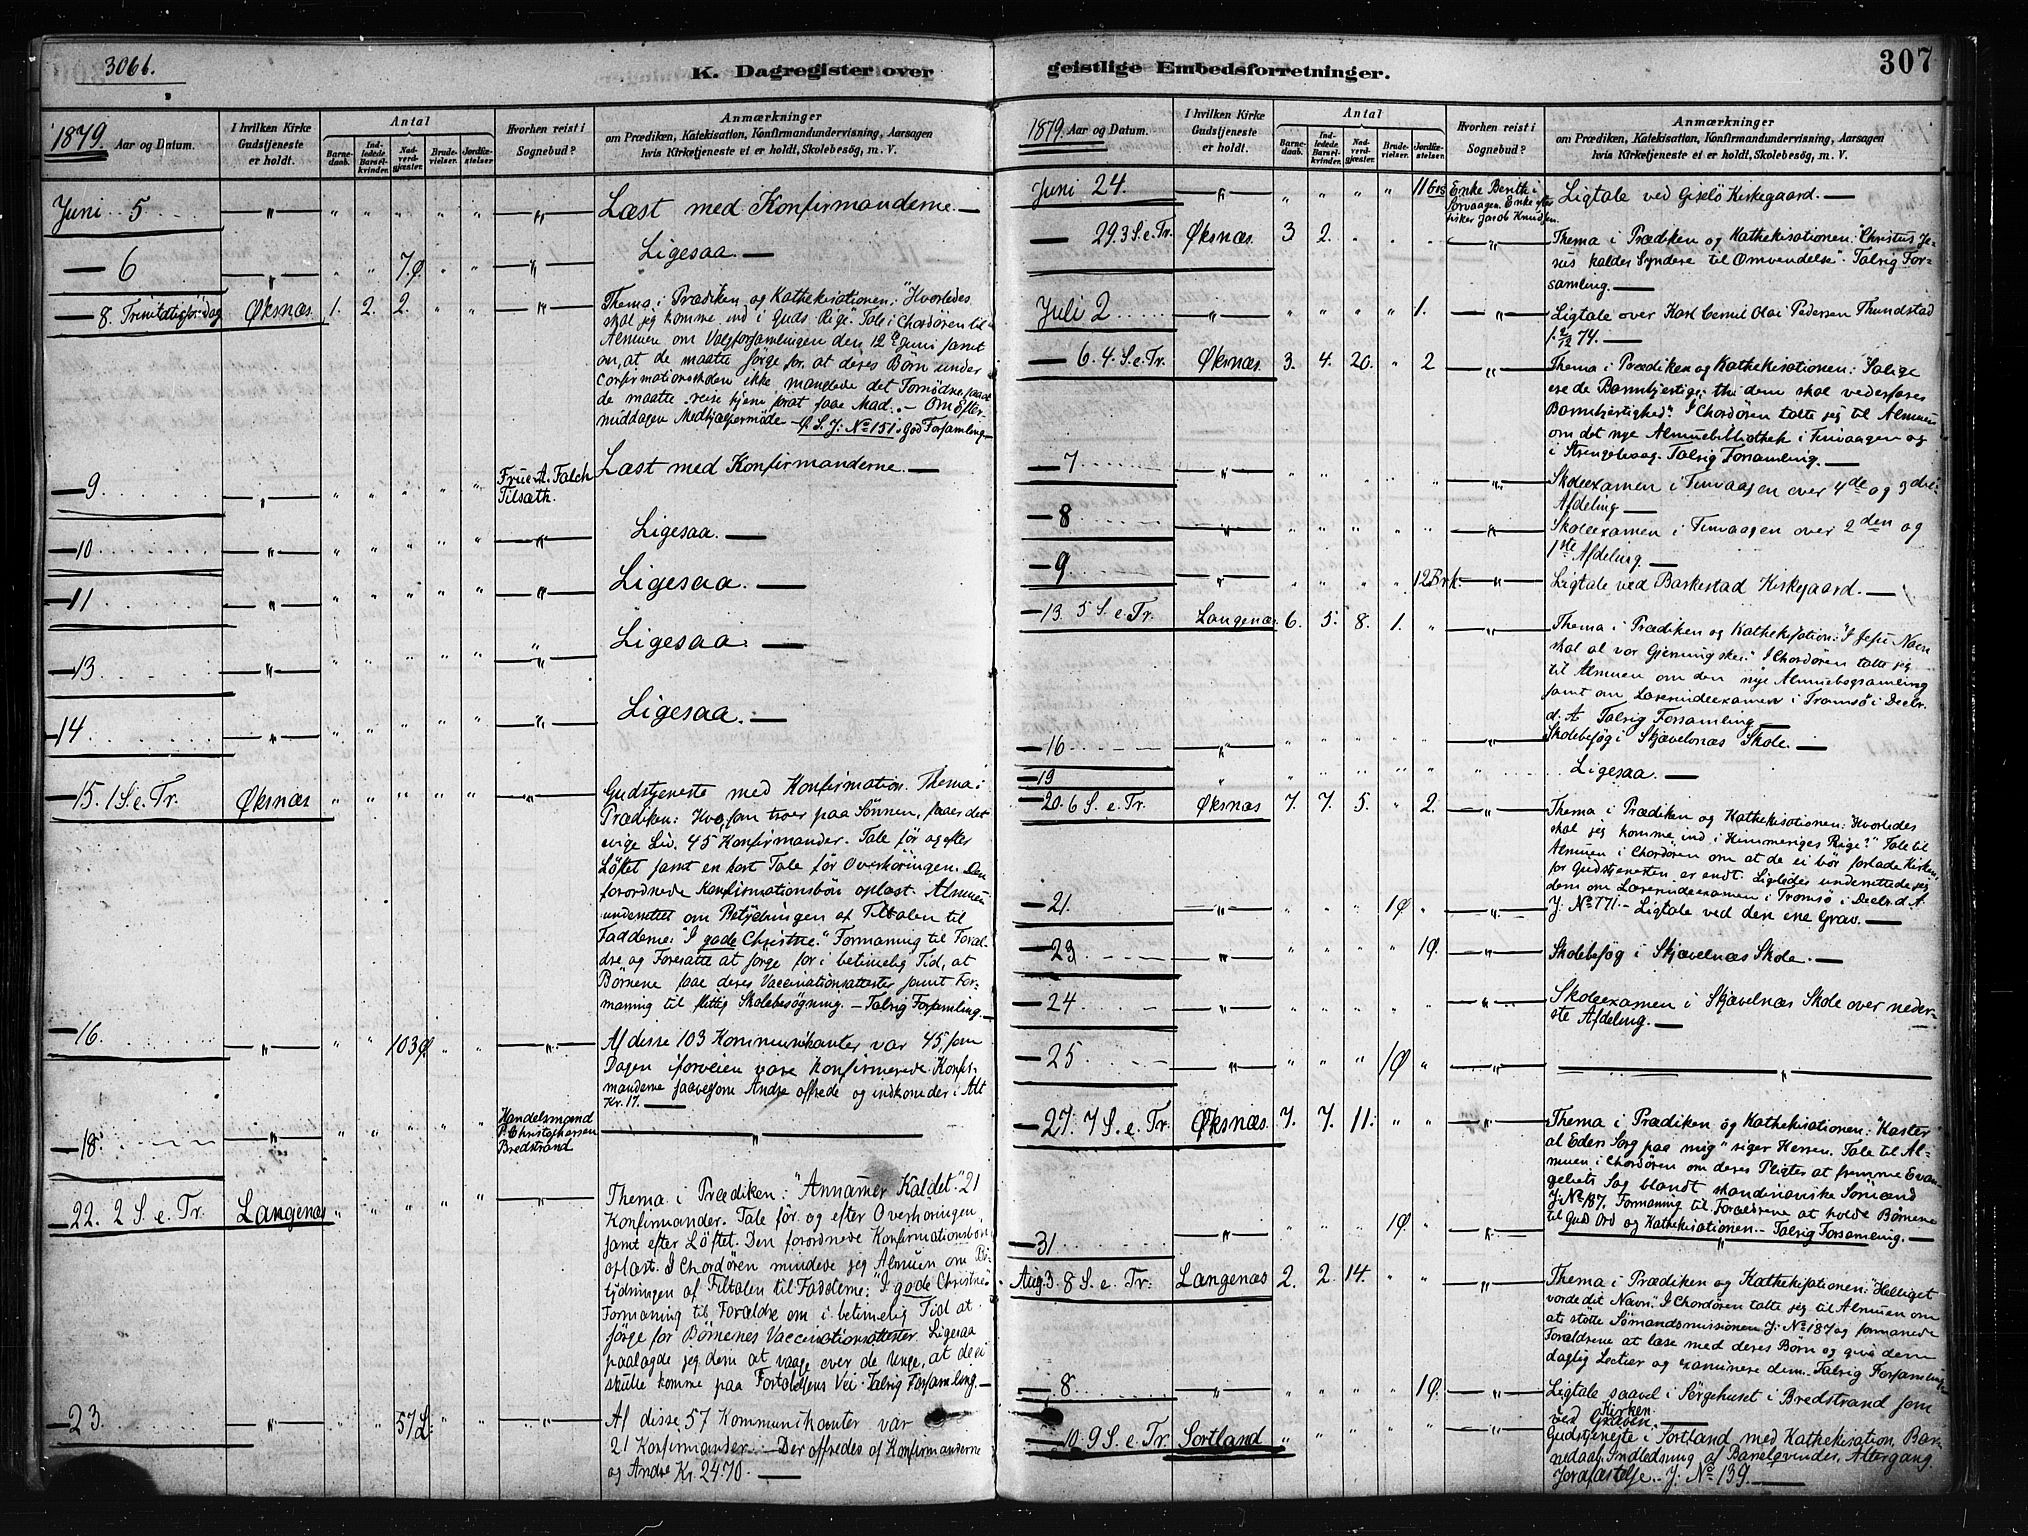 306b.
K. Dagregister over
1879. Aar og Datum.
I hvilken Kirke Gudstjeneste er holdt.
Antal
Barnedaab.
Indledede Barselkvinder.
Nadverdgjæster.
Brudevielser.
Jordfæstelser.
Hvorhen reist i Sognebud?
Anmærkninger
om Prædiken, Katekisation, Konfirmandundervisning, Aarsagen
hvis Kirketjeneste ei er holdt, Skolebesøg, m. V.
Juni 5 " " " " " " " Læst med Konfirmanderne. —
— 6 " " " 7Ø " " " Ligesaa. —
— 8. Trinitatissøndag Øksnæs 1. 2. 2. " " " Thema i Prædiken og Kathekisationen: "Hvorledes
skal jeg komme ind i Guds Rige". Tale i Chordøren til
Almuen om Valgforsamlingen den 12te Juni samt
om, at de maatte sørge for, at deres Børn under
Confirmationstiden ikke manglede det Fornødne, saa at
de maatte reise hjem forat faae Mad. — Om Efter-
middagen Medhjælpermøde — J: No 151. God Forsamling —
— 9. " " " " " " Frue A. Falch Tilsæth. Læst med Konfirmanderne. —
— 10 " " " " " " " Ligesaa. —
— 11 " " " " " " " Ligesaa —
— 13 " " " " " " " Ligesaa —
— 14 " " " " " " " Ligesaa. —
— 15. 1 S. e. Tr. Øksnæs " " " " " " Gudstjeneste med Konfirmation. Thema i
Prædiken: Hvo, som troer paa Sønnen, faaer det
evige Liv. 45 Konfirmander. Tale før og efter
Løftet samt en kort Tale før Overhøringen. Den
forordnede Konfirmationsbøn oplæst. Almuen
underrettet om Betydningen af Tiltalen til
Fadderne: "I gode Christne." Formaning til Foræl-
dre og Foresatte at sørge for i betimelig Tid, at
Børnene faae deres Vaccinationsattester samt For-
maning til flittig Skolebesøgning. — Talrig Forsamling. —
— 16. " " " 103Ø " " " Af disse 103 Kommunikanter var 45, som
Dagen iforveien vare Konfirmerede. Konfir-
manderne saavelsom Andre offrede og indkom der i Alt
Kr. 17. —
— 18. " " " " " " Handelsmand P. Christophersen Bredstrand "
— 22. 2 S. e. Tr. Langenæs " " " " " " Thema i Prædiken: "Annammer Kaldet." 21
Konfirmander. Tale før og efter Overhøringen,
samt efter Løftet. Den forordnede Konfirmationsbøn
oplæst. I Chordøren mindede jeg Almuen om Be-
tydningen af Tiltalen til Fadderne: "I gode Christne"
Formaning til Forældre om i betimelig Tid at
sørge for Børnenes Vaccinationsattester. Ligesaa
paalagde jeg dem at vaage over de Unge, at de ei
skulle komme paa Fortabelsens Vei. Talrig Forsamling. —
— 23. " " " 57L: " " " Af disse 57 Kommunikanter var
21 Konfirmander — Der offredes af Konfirmanderne
og Andre Kr. 24.70. —
geistlige Embedsforretninger.
307
1879. Aar og Datum.
I hvilken Kirke Gudstjeneste er holdt.
Antal
Barnedaab.
Indledede Barselkvinder.
Nadverdgjæster.
Brudevielser.
Jordfæstelser.
Hvorhen reist i Sognebud?
Anmærkninger
om Prædiken, Katekisation, Konfirmandundervisning, Aarsagen
hvis Kirketjeneste ei er holdt, Skolebesøg, m. V.
Juni 24. " " " " " 11 Enke Berith i Sorvaagen. Enke efter Fisker Jacob Knudsen. Ligtale ved Gisløs Kirkegaard. —
— 29. 3 S. e. Tr. Øksnæs 3 2. " " " " Thema i Prædiken og Kathekisationen: "Christus Je-
sus kalder Syndere til Omvendelse". Talrig For-
samling. —
Juli 2 " " " " " 1. " Ligtale over Karl Cornil Olai Pedersen Thunstad
f. 2/12 74. —
— 6. 4. S. e. Tr. Øksnæs. 3. 4. 20. " 2 " Thema i Prædiken og Kathekisationen: "Salige
ere de Barmhjertige; thi dem skal vederfares
Barmhjertighed". I Chordøren talte jeg til Almuen
om det nye Almuebibliothek i Tinvaagen og
i Strengelvaag. Talrig Forsamling. —
— 7 " " " " " " " Skoleexamen i Tinvaagen over 4de og 3die
Afdeling —
— 8 " " " " " " " Skoleexamen i Tinvaagen over 2den og
1ste Afdeling. —
— 9 " " " " " 12 Brk. " Ligtale ved Barkestad Kirkegaard. —
— 13. 5 S. e. Tr. Langenæs. 6. 5. 8. 1. " " Thema i Prædiken og Kathekisation: "I Jesu Navn
skal al vor Gjerning ske." I Chordøren talte jeg
til Almuen om den nye Almuebogsamling
samt om Lærerindeexamen i Tromsø i Decbr.
d. A. Talrig Forsamling —
— 16 " " " " " " " Skolebesøg i Skjævelnæs Skole. —
— 19 " " " " " " " Ligesaa. —
— 20. 6 S. e. Tr. Øksnæs 7. 7. 5. " 2. " Thema i Prædiken og Kathekisationen: "Hvorledes
skal jeg komme ind i Himmeriges Rige?" Tale til
Almuen i Chordøren om at de ei bør forlade Kirken,
før Gudstjenesten er endt. Ligeledes underrettede jeg
dem om Lærerindeexamen i Tromsø i Decbr. d. A.
J. No 171. — Ligtale ved den ene Grav. —
— 21. " " " " 1Ø " "
— 23 " " " " " 1Ø. " Skolebesøg i Skjævelnæs Skole. —
— 24 " " " " " " " Skoleexamen i Skjævelnæs Skole over neder-
ste Afdeling. —
— 25 " " " " 1Ø " " "
— 27. 7 S. e. Tr. Øksnæs. 7. 7. 11. " " " Thema i Prædiken og Kathekisationen: "Kaster
al Eders Sorg paa mig" siger Herren. Tale til Al-
muen i Chordøren om deres Pligter at fremme Evan-
geliets Sag blandt skandinaviske Sømænd
J. No 187. Formaning til Forældrene at holde Børnene
til Guds Ord og Kathekisationen. — Talrig Forsamling. —
— 31 " " " " 1Ø " " "
Aug. 3. 8 S. e. Tr. Langenæs 2. 2. 14. " " " Thema i Prædiken og Kathekisationen: "Helliget
vorde dit Navn". I Chordøren talte jeg til Almuen om
at støtte Sømandsmissionen J. No 187 og formanede
Forældrene at læse med deres Børn og give dem
daglig Lectier og examinere dem. Talrig Forsamling.
— 8 " " " " " 1Ø. " Ligtale saavel i Sørgehuset i Bredstrand som
ved Graven. Kirken —
— 10. 9 S. e. Tr. Sortland " " " " " " Gudstjeneste i Sortland med Kathekisation, Bar-
nedaab, Indledning af Barselqvinder, Altergang,
Jordfæstelse. J. No 139. —